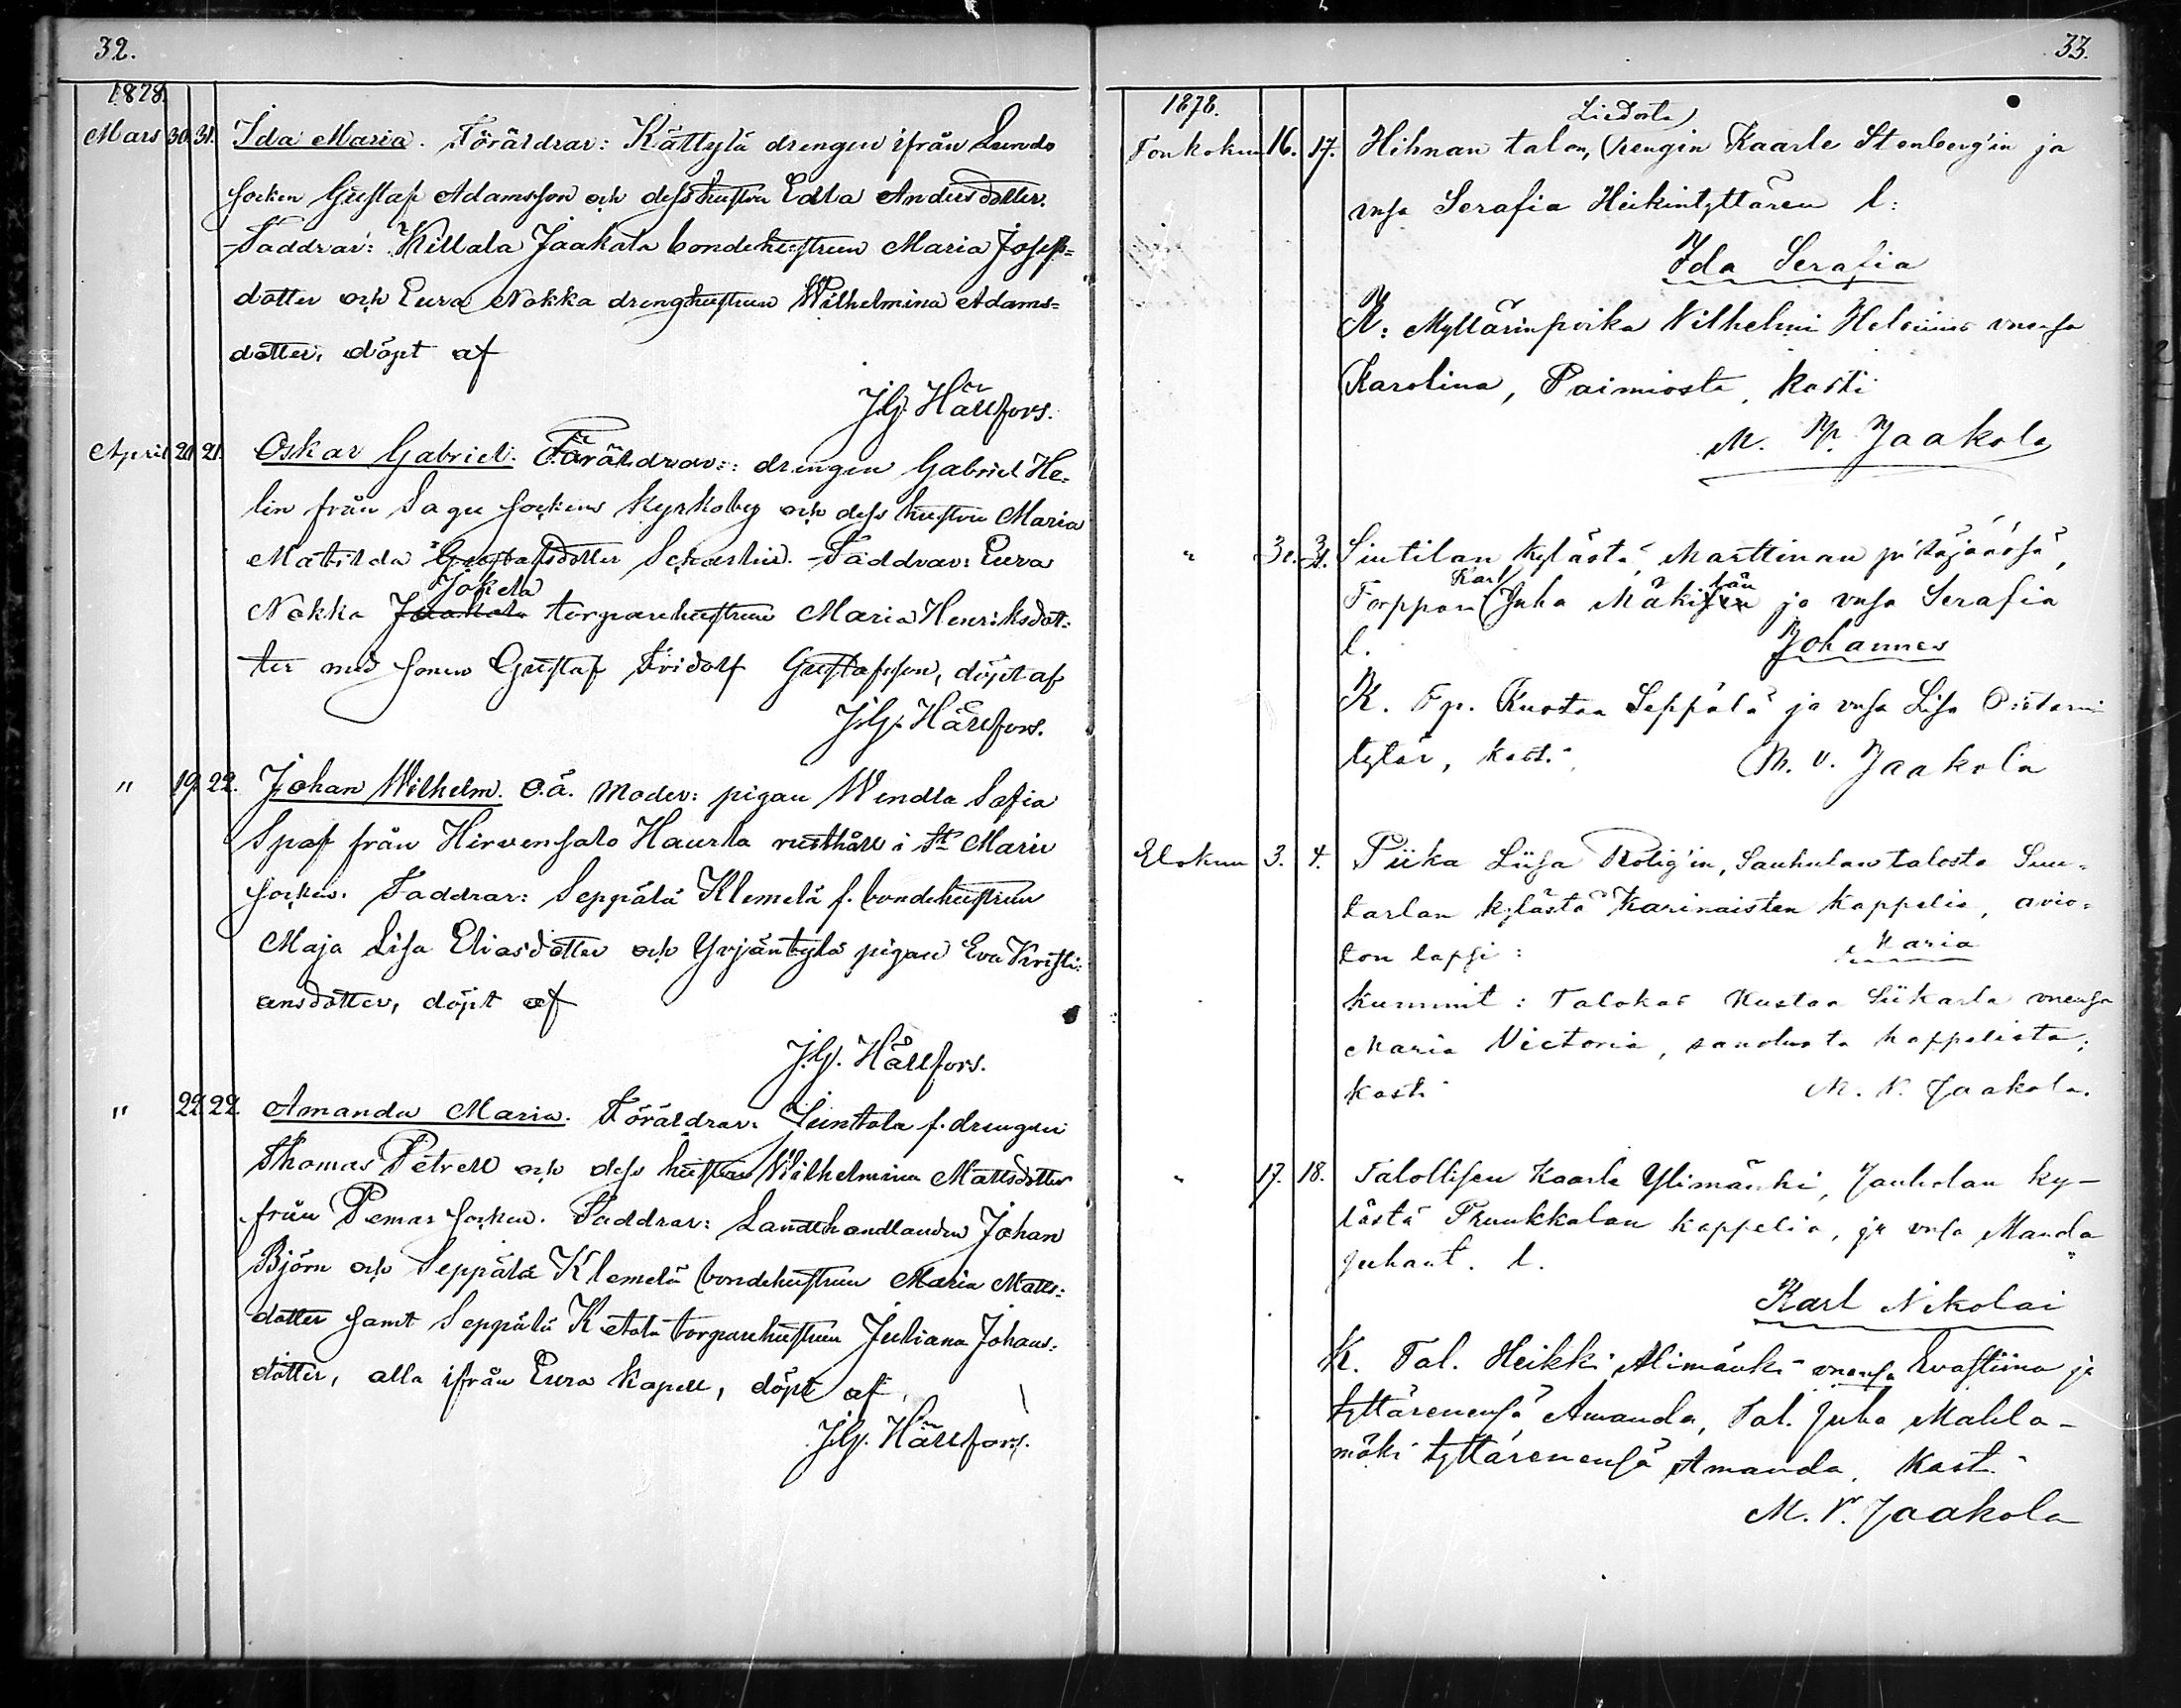 32.
1878.
Mars 30. 31. Ida Maria. Föräldrar: Kättylä drengen ifrån Lundo
socken Gustaf Adamsson och dess hustru Edla Andersdotter.
Faddrar: Killala Jaakola bondehustrun Maria Josefs=
dotter och Eura Nokka drenghustrun Wilhelmina Adams=
dotter, döpt af
J.G. Hällfors.
April 20. 21. Oskar Gabriel. Föräldrar: drengen Gabriel He=
lin från Sagu sockens Kyrkoby och dess hustru Maria
Matilda Gustafsdotter. Faddrar: Eura
Jokela
Nokka Jaakola torparehustrun Maria Henriksdot=
ter med sonen Gustaf Fridolf Gustafsson, döpt af
J.G. Hällfors.
" 19. 22. Johan Wilhelm. O.ä. Moder: pigan Wendla Sofia
Spaf från Hirvensalo Haurla rusthåll i St. Marie
socken. Faddrar: Seppälä Klemelä f. bondehustrun
Maja Lisa Eliasdotter och Yrjäntylä pigan Eva Kristi=
ansdotter, döpt af
J.G. Hällfors.
" 22. 22. Amanda Maria. Föräldrar: Juntola f. drengen
Thomas Petrell och dess hustru Wilhelmina Mattsdotter
från Pemar socken. Faddrar: Landthandlanden Johan
Björn och Seppälä Klemelä bondehustrun Maria Matts=
dotter samt Seppälä Ketola torparehustrun Juliana Johans=
dotter, alla ifrån Eura Kapell, döpt af
J.G. Hällfors.
33.
1878.
Liedosta
Toukokuu 16. 17. Hihnan talon, Rengin Kaarle Stenberg'in ja
vmsa Serafia Heikintyttären l:
Ida Serafia
K: Myllärinpoika Vilhelmi Helenius vneensa
Karolina, Paimiosta, kasti
M. V. Jaakola
" 31. Sintilan kylästä, Marttinan pitäjäässä,
Karl län
Torppari Juha Mäki ja vmsa Serafia
l. Johannes
K. Tp. Kustaa Seppälä ja vmsa Lisa
tytär, kasti. M. V. Jaakola
Elokuu 3. 4. Piika Liisa Rolig'in, Sauhulan talosta Suu=
tarlan kylästä Karinaisten Kappelia, avio=
ton lapsi: Maria
Kummit: Talokas Kustaa Siikarla vneensa
Maria Victoria, samalusta kappelista;
kasti M. V. Jaakola.
" 17. 18. Talollisen Kaarle Ylimäuki, Jauholan ky-
lästä Prunkkalan kappelia, ja vmsa Manda
Juhant. l.
Karl Nikolai
K. Tal. Heikki Alimäuki vneensa Evastiina ja
tyttärenensä Amanda, Tal. Juha Mahla-
mäki tyttärenensä Amanda. Kasti
M. V. Jaakola